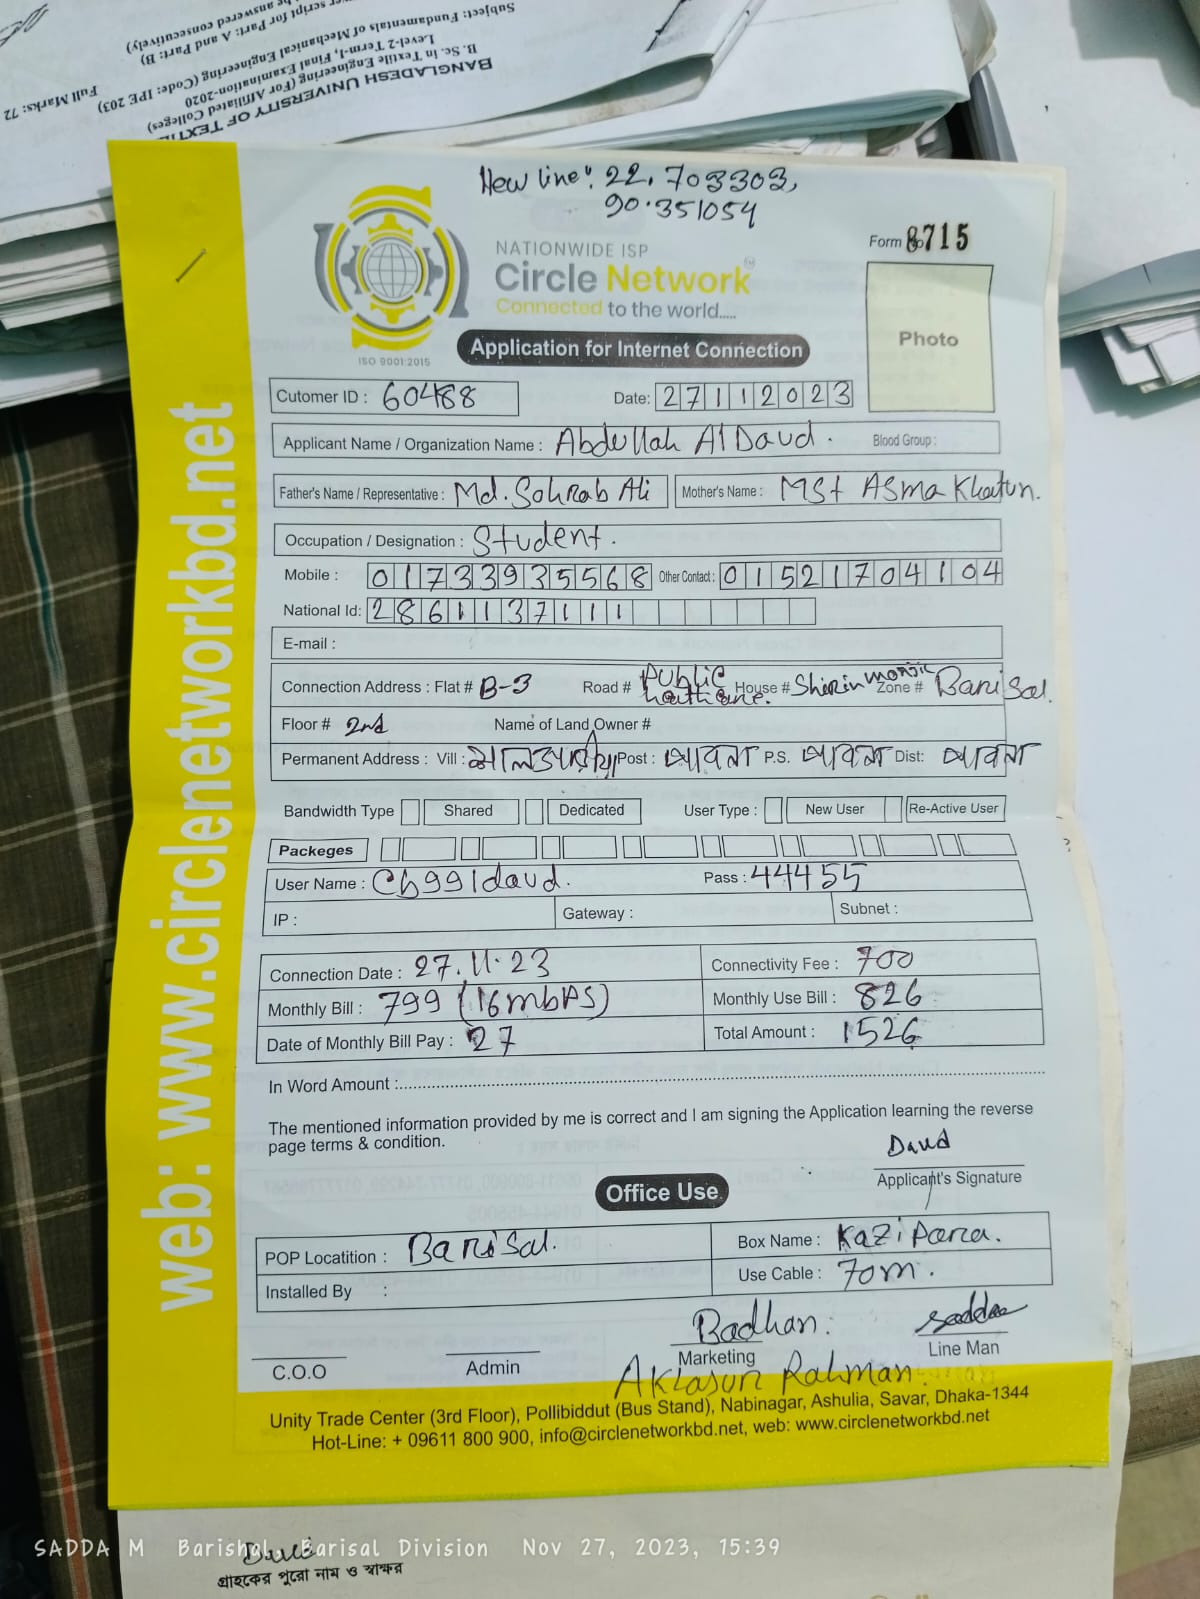 BANGLADESH UNIVERSITY OF TEXTILES
B. Sc. In Textile Engineering (For Affiliated Colleges)
Level-2 Term-I, Final Examination-2020
Subject: Fundamentals of Mechanical Engineering (Code: IPE 203)
Full Marks: 72
script for Part: A and Part: B)
be answered consecutively)
New line: 22.703303,
90.351054
NATIONWIDE ISP
Form 8715
Circle Network
Connected to the world.....
ISO 9001:2015
Application for Internet Connection
Photo
Cutomer ID : 60488 Date: 27112023
Applicant Name / Organization Name : Abdullah Al Daud. Blood Group :
Father's Name / Representative : Md. Sohrab Ali Mother's Name : MSt Asma Khatun.
Occupation / Designation : Student.
Mobile : 01733935568 Other Contact : 01521704104
National Id: 2861137111
E-mail :
Connection Address : Flat # B-3 Road # Public House # Sherin monjil Zone # Barisal.
Floor # 2nd Name of Land Owner #
Permanent Address : Vill : Post : পাবনা P.S. পাবনা Dist: পাবনা
Bandwidth Type Shared Dedicated User Type : New User Re-Active User
Packeges
User Name : Cb991daud. Pass : 44455
IP : Gateway : Subnet :
Connection Date : 27.11.23 Connectivity Fee : 700
Monthly Bill : 799 (16mbps) Monthly Use Bill : 826
Date of Monthly Bill Pay : 27 Total Amount : 1526
In Word Amount :
The mentioned information provided by me is correct and I am signing the Application learning the reverse
page terms & condition.
Daud
Applicant's Signature
Office Use
POP Locatition : Barisal. Box Name : Kazi Para.
Installed By : Use Cable : 70m.
Badhan. Sadda
C.O.O Admin Marketing Line Man
Aklasur Rahman.
Unity Trade Center (3rd Floor), Pollibiddut (Bus Stand), Nabinagar, Ashulia, Savar, Dhaka-1344
Hot-Line: + 09611 800 900, info@circlenetworkbd.net, web: www.circlenetworkbd.net
web: www.circlenetworkbd.net
SADDA M Barishal, Barisal Division Nov 27, 2023, 15:39
Daud
গ্রাহকের পুরো নাম ও স্বাক্ষর